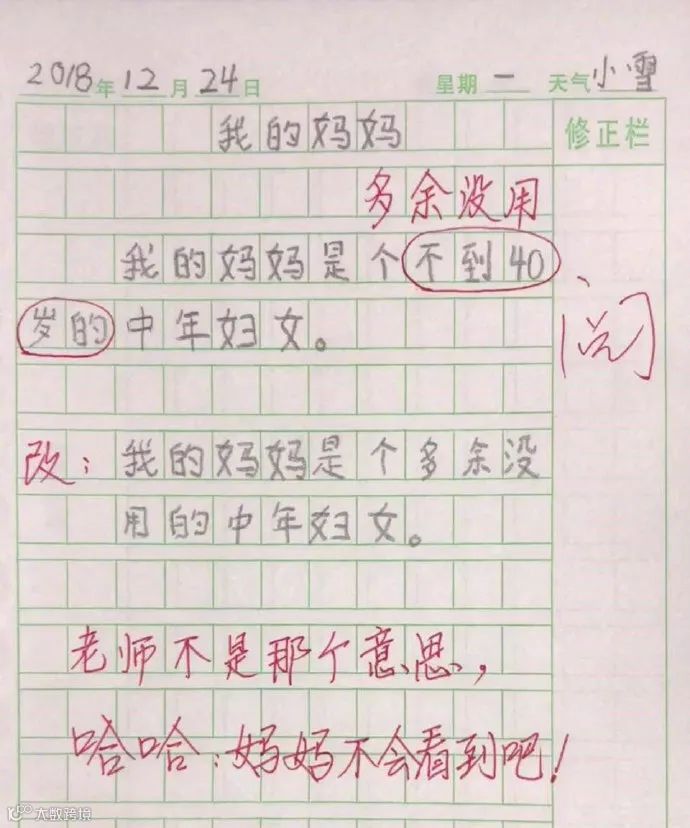 2018年12月24日 星期一 天气小雪
我的妈妈
修正栏
多余没用
我的妈妈是个不到40
岁的中年妇女。
阅
改：我的妈妈是个多余没
用的中年妇女。
老师不是那个意思，
哈哈：妈妈不会看到吧！
大数跨境